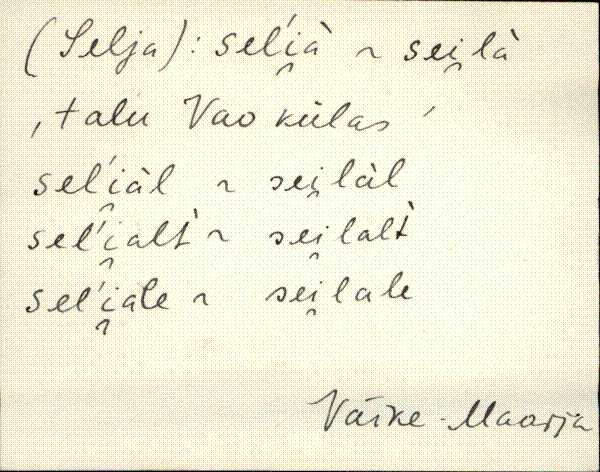 (Selja): sel´i̯à ~ sei̯là
‚talu Vao külas'
sel´i̯àl ~ sei̯làl
sel´i̯alt̀ ~ sei̯lalt̀
sel´i̯ale ~ sei̯lale
Väike-Maarja